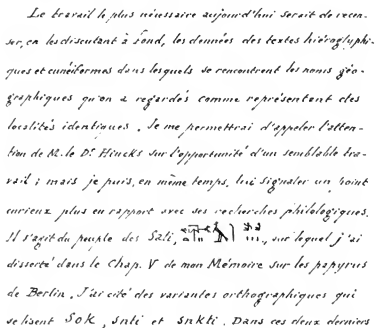 Le travail le plus nécessaire aujourd'hui serait de recen-
ser, en les discutant à fond, les données des textes hiéroglyphi-
ques et cunéiformes dans lesquels se rencontrent les noms géo-
graphiques qu'on a regardés comme représentant des
localités identiques. Je me permettrai d'appeler l'atten-
tion de M. le Dr. Hincks sur l'opportunité d'un semblable tra-
vail ; mais je puis, en même temps, lui signaler un point
curieux plus en rapport avec ses recherches philologiques.
Il s'agit du peuple des Sati, sur lequel j'ai
disserté dans le Chap. V de mon Mémoire sur les papyrus
de Berlin. J'ai cité des variantes orthographiques qui
se lisent SOK, snti et snkti. Dans ces deux derniers